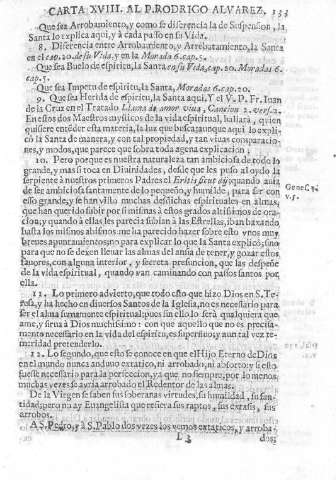 CARTA XVIII. AL P. RODRIGO ALVAREZ. 133
Que sea Arrobamiento, y como se diferencia la de Suspension, la
Santa lo explica aqui, y à cada passo en su Vida.
8. Diferencia entre Arrobamiento, y Arrebatamiento, la Santa
en el cap. 20. de su Vida, y en la Morada 6. cap. 5.
Que sea Buelo de espiritu, la Santa en su Vida, cap. 20. Moradas 6.
cap. 5.
Que sea Impetu de espiritu, la Santa, Moradas 6. cap. 20.
9. Que sea Herida de espiritu, la Santa aqui, y el V. P. Fr. Iuan
de la Cruz en el Tratado Llama de amor viva, Cancion 2. vers. 2.
En estos dos Maestros mysticos de la vida espiritual, hallarà, quien
quisiere entender esta materia, la luz que busca; aunque aqui lo explicò
la Santa de manera, y con tal propiedad, y tan vivas comparaciones,
y modos, que parece que sobra toda agena explicacion.
10. Pero porque es nuestra naturaleza tan ambiciosa de todo lo
grande, y mas si toca en Divinidades, desde que les puso al oydo la
serpiente à nuestros primeros Padres el Eritis sicut dij, quando avia
de ser ambiciosa santamente de lo pequeño, y humilde, para ser con
esso grande; y se han visto muchas desdichas espirituales en almas,
que han querido subir por si mismas à estos grados altissimos de oracion;
y quando à ellas les parecia subian à las Estrellas, iban baxando
hasta los mismos abismos; me ha parecido hazer sobre esto vnos muy
breves apuntamientos; no para explicar lo que la Santa explicò; sino
para que no se dexen llevar las almas del ansia de tener, y gozar estos
favores, con alguna interior, y secreta presuncion, que las despeñe
de la vida espiritual, quando van caminando con passos santos por
ella.
11. Lo primero advierto, que todo esto que hizo Dios en S. Teresa,
y ha hecho en diversos Santos de la Iglesia, no es necessario para
ser el alma sumamente espiritual; pues sin ello lo serà qualquiera que
ame, y sirva à Dios muchissimo: con que aquello que no es precisamente
necessario en la vida del espiritu, es superfluo; y aun tal vez temeridad
pretenderlo.
12. Lo segundo, que esto se conoce en que el Hijo Eterno de Dios
en el mundo nunca anduvo extatico, ni arrobado, ni absorto; y si esto
fuesse necessario para la perfeccion, ya que no siempre, por lo menos
muchas vezes se avria arrobado el Redentor de las almas.
De la Virgen se saben sus soberanas virtudes, su humildad, su santidad;
pero no ay Evangelista que refiera sus raptos, sus extasis, sus
arrobos.
A S. Pedro, y à S. Pablo dos vezes los vemos extaticos, y arroba-
L 3 dos;